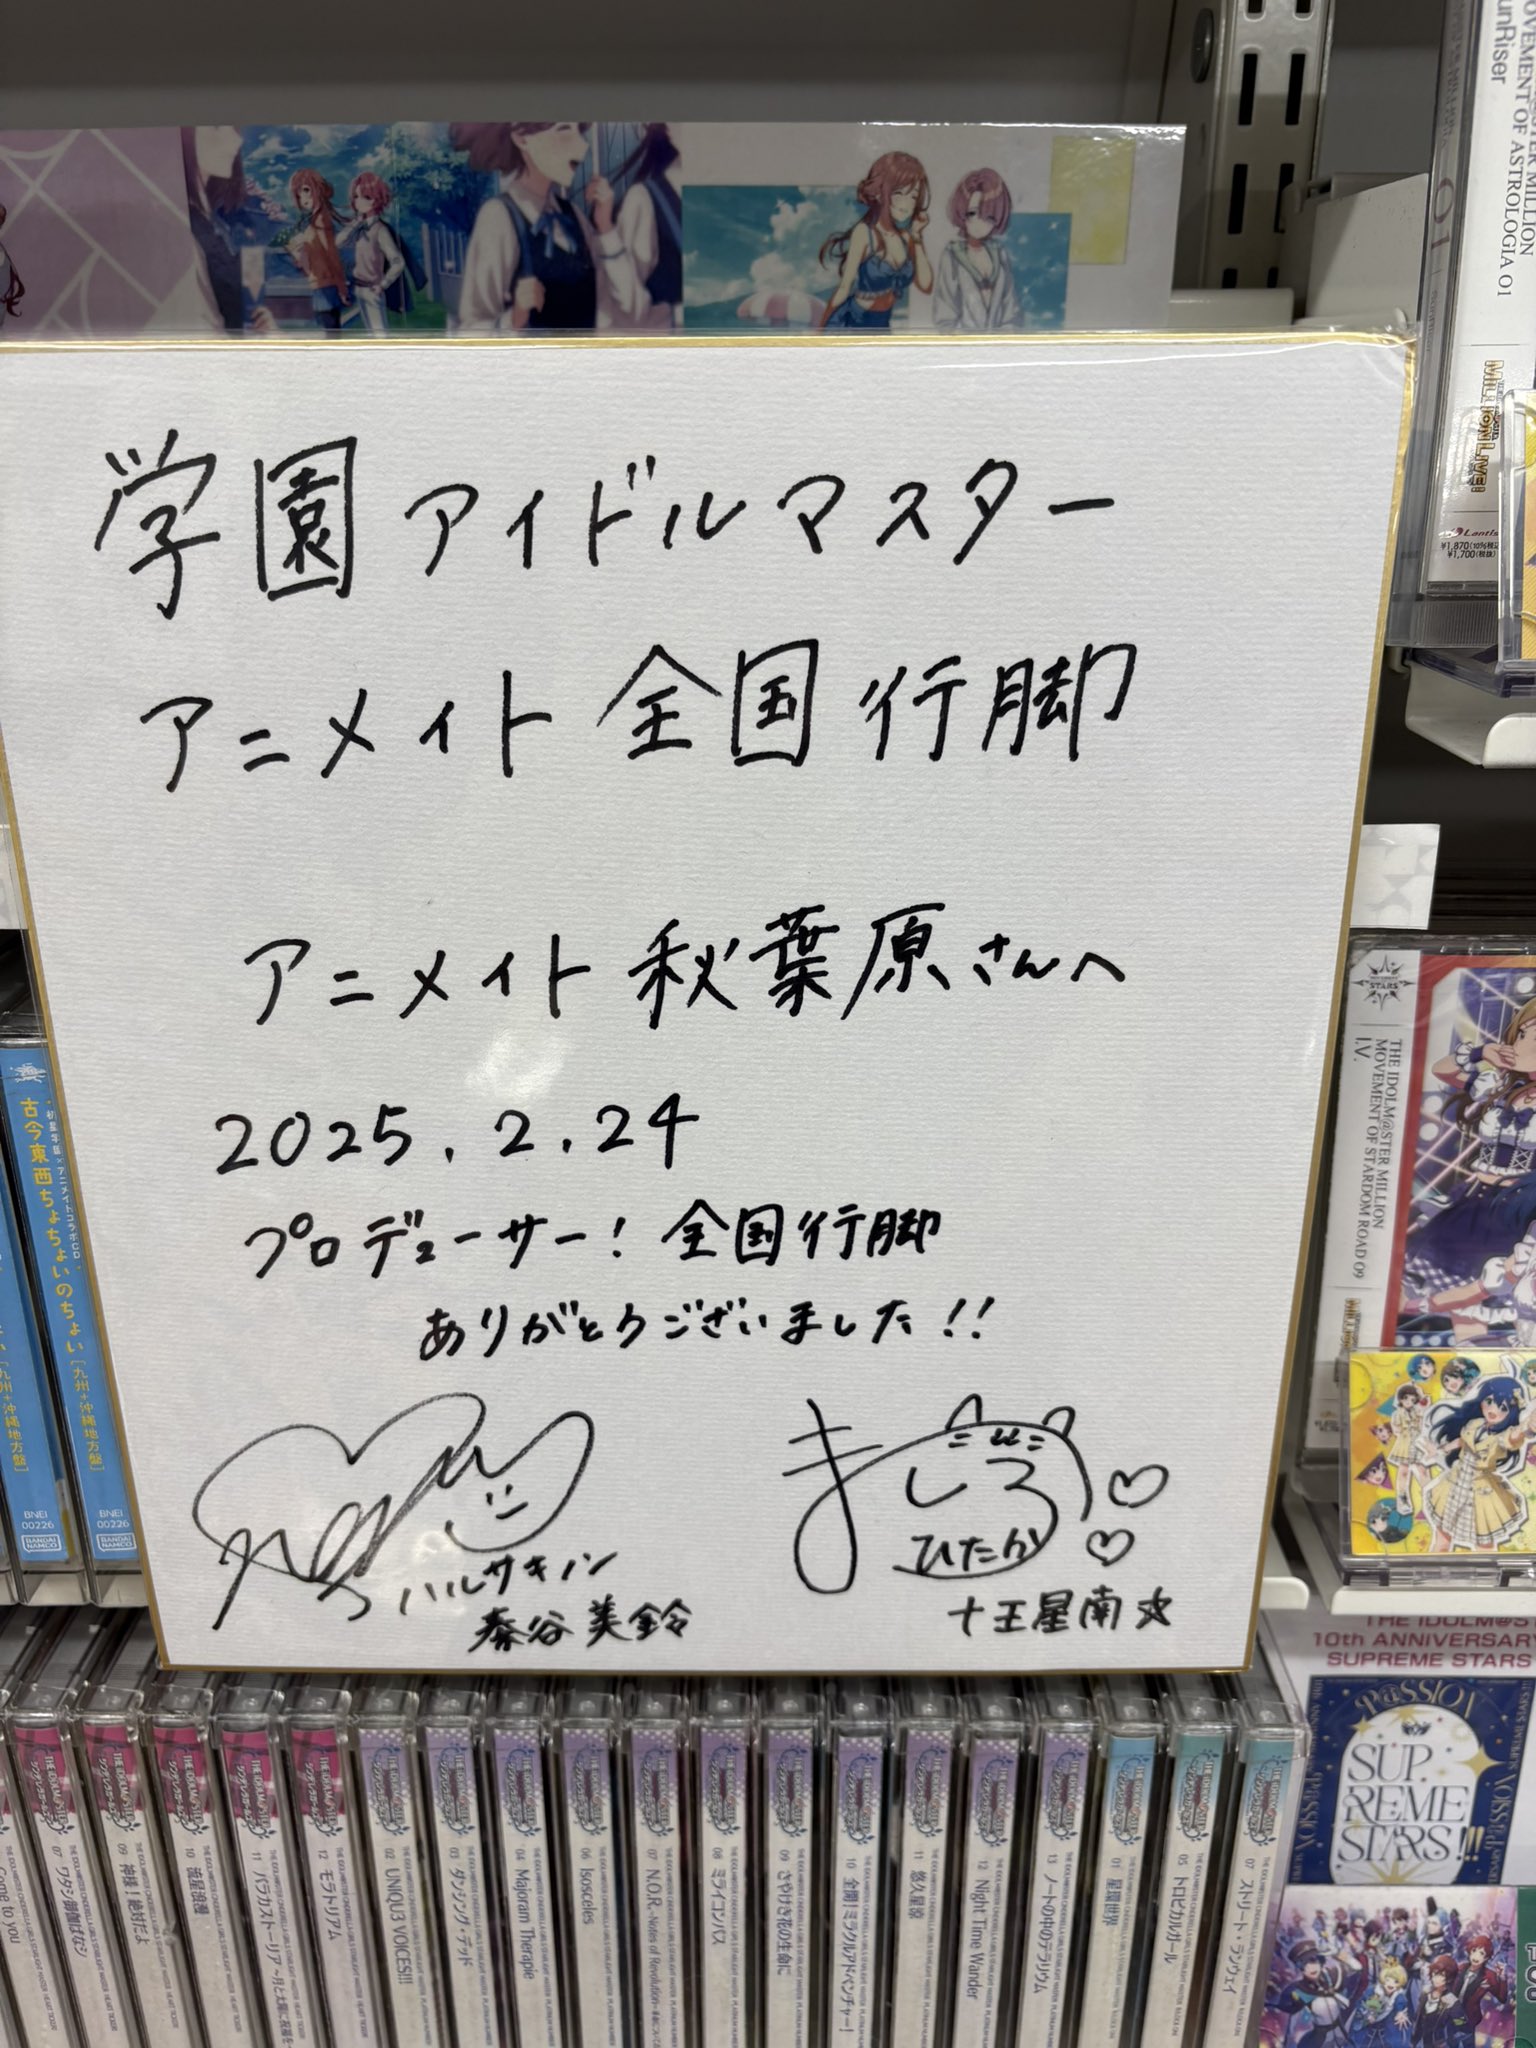 学園アイドルマスター
アニメイト全国行脚
アニメイト秋葉原さんへ
2025.2.24
プロデューサー！全国行脚
ありがとうございました！！
ハルサキノン
秦谷美鈴
ましろ
ひたか
十王星南☆
unRiser
MOVEMENT OF ASTROLOGIA 01
MILLION LIVE!
Lantis
¥1,870(10%税込)
¥1,700(税抜)
STARS
THE IDOLM@STER MILLION
MOVEMENT OF STARDOM ROAD 09
I.V.
古今東西ちょちょいのちょい [九州+沖縄地方盤]
BNEI
00226
BANDAI
NAMCO
BNEI
00226
BANDAI
NAMCO
10th ANNIVERSARY
SUPREME STARS
P@SSION
SUP
REME
STARS!!!
Come to you
07 ワタシ御伽ばなシ
09 神様！絶対だよ
10 流星浪漫
11 バラカストーリア
12 モラトリアム
02 UNIQU3 VOICES!!!
03 ダンシング・デッド
04 Majoram Therapie
06 Isosceles
07 N.O.R.
08 ミライコンパス
09 ささげき花の生命に
10 全開！ミラクルアドベンチャー！
11 悠久星涼
12 Night Time Wander
13 ノートの中のテラリウム
01 星環世界
05 トロピカルガール
07 ストリート・ランウェイ